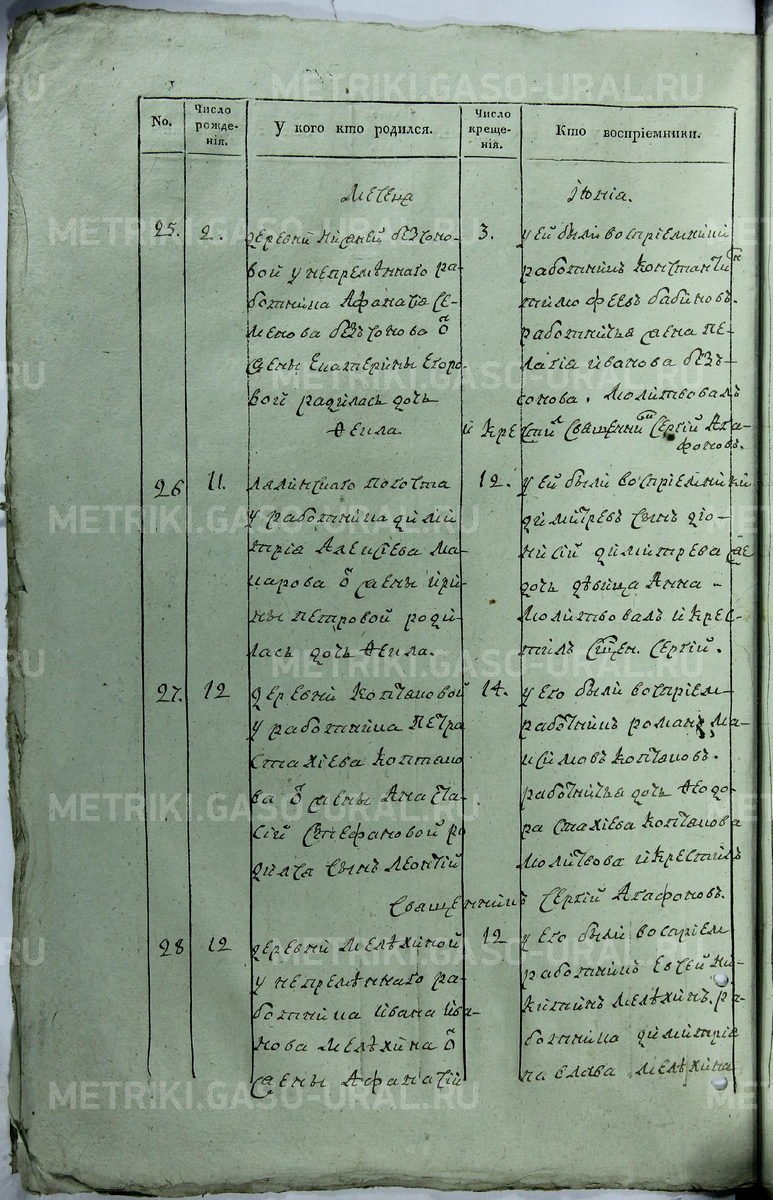 METRIKI.GASO-URAL.RU
No.
Число рожде-нія.
У кого кто родился.
Число креще-нія.
Кто воспріемники.
Месеца
Іюніа.
25.
2.
деревни нижней безсоно-
вой у непремѣннаго ра-
ботника Афанасіа Се-
менова безсонова ѿ
жены Екатерины Егоро-
вой радилась дочь
Ѳекла
3.
у ей были воспріемники
работникъ Константинъ
тимофеевъ бабиновъ.
работничья жена пе-
лагія иванова безъ-
сонова. Молитвовалъ
и крестилъ Священникъ Сергій Ага-
фоновъ.
26
11.
лялинскаго погоста
у работника дими-
трія Алексіева Ма-
карова ѿ жены Ири-
ны петровой роди-
лась дочь Ѳекла.
12.
у ей были воспріемники
димитревъ сынъ діо-
нисій димитрева же
дочь дѣвица Анна
Молитвовалъ и крес-
тилъ Сщен. Сергій.
27.
12
деревни коптяковой
у работника Петра
стахіева коптяко-
ва ѿ жены Анаста-
сіи Стефановой ро-
дился сынъ Леонтій
14.
у его были воспріем
работникъ романъ Ма-
ксимовъ коптяковъ.
работничья дочь Ѳеодо-
ра стахіева коптякова
Молитвова и крестилъ
Священникъ Сергій Агафоновъ.
28
12
деревни мелѣхиной
у непремѣннаго ра-
ботника ивана ива-
нова мелѣхина ѿ
жены Афанасіи
12
у его были воспріем
работникъ Евсей ни-
китинъ мелѣхинъ. ра-
ботника димитріа
павлова мелѣхина